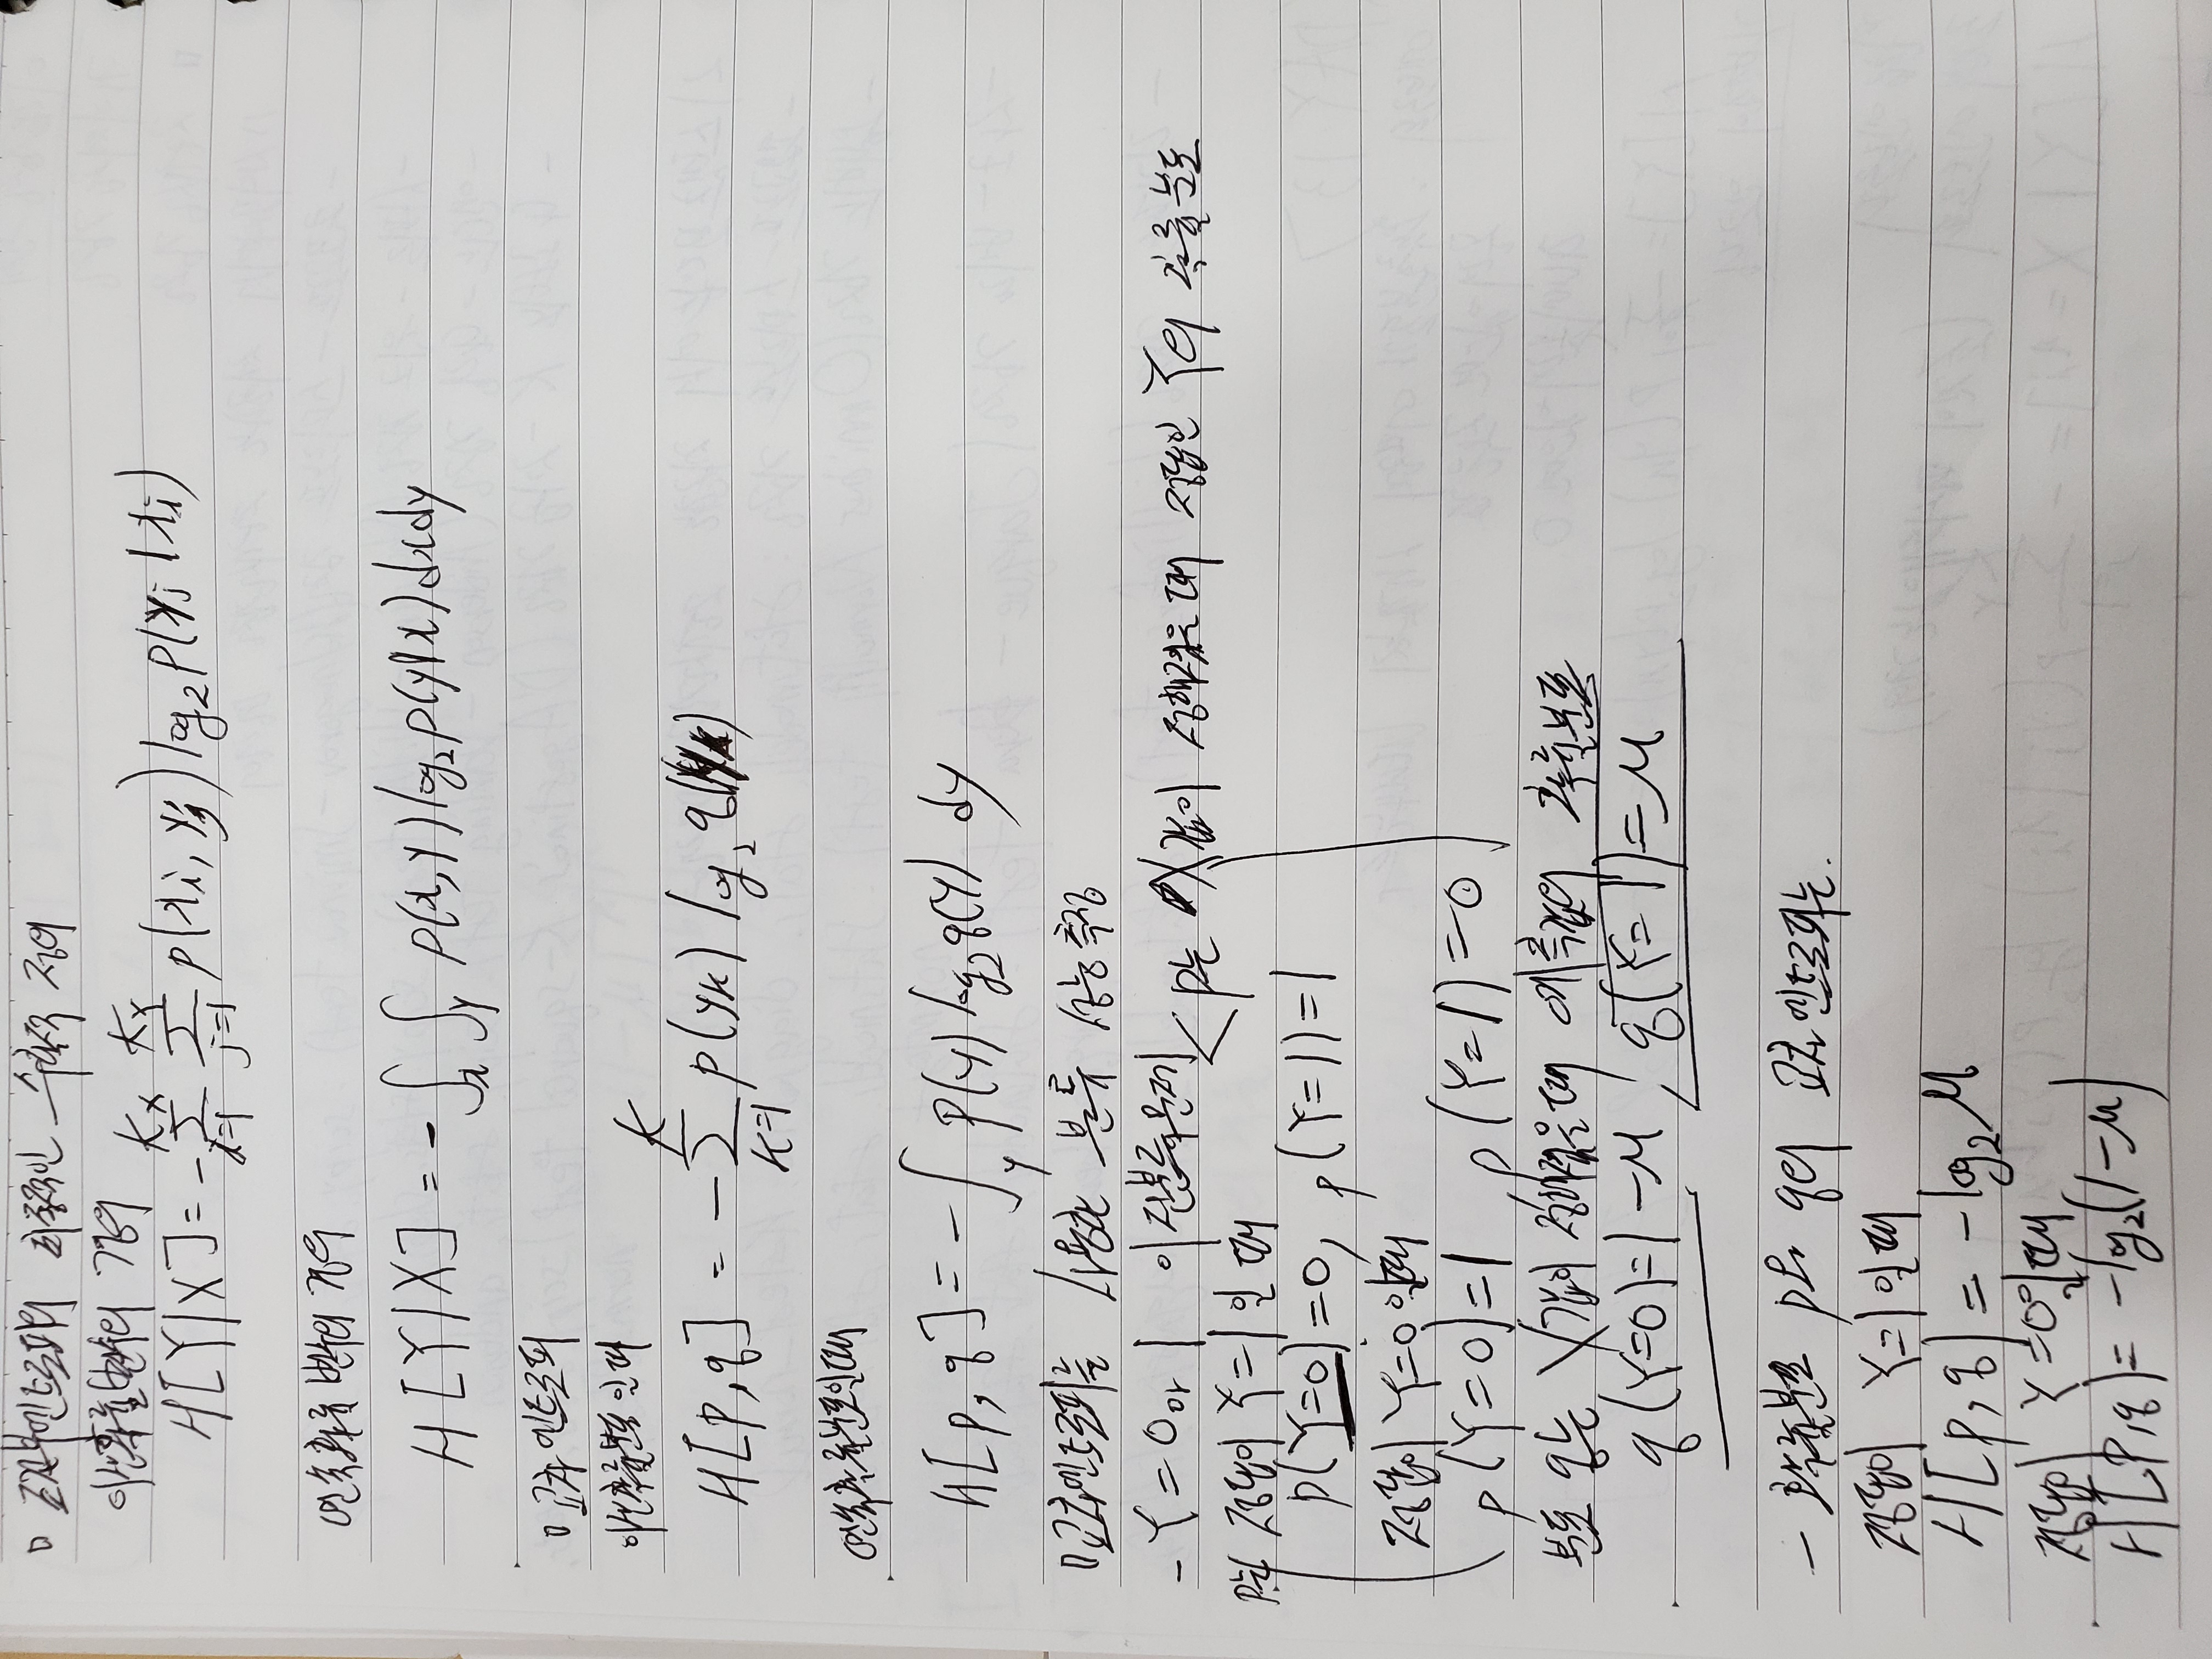 ▯ 조건부엔트로피의 최종적인 수학적 정의
이산확률변수의 경우
H[Y|X] = -∑_{i=1}^{K_X} ∑_{j=1}^{K_Y} p(x_i, y_j) log₂ p(y_j | x_i)
연속확률 변수의 경우
H[Y|X] = -∫_x ∫_y p(x,y) log₂ p(y|x) dxdy
▯ 교차엔트로피
이산확률분포 일때
H[p,q] = -∑_{k=1}^{K} p(y_k) log₂ q(y_k)
연속확률분포일때
H[p,q] = -∫_y p(y) log₂ q(y) dy
▯ 교차엔트로피를 사용한 분류 성능측정
- Y=0 or 1 이진분류문제 < p는 X값이 정해졌을때 정답인 Y의 확률분포
p는 정답이 Y=1일 때
p(Y=0)=0, p(Y=1)=1
정답이 Y=0일때
p(Y=0)=1, p(Y=1)=0
분포 q는 X값이 정해졌을때 예측값의 확률분포
q(Y=0)=1-μ, q(Y=1)=μ
- 확률분포 p와 q의 교차엔트로피는.
정답이 Y=1일때
H[p,q] = -log₂μ
정답이 Y=0일때
H[p,q] = -log₂(1-μ)